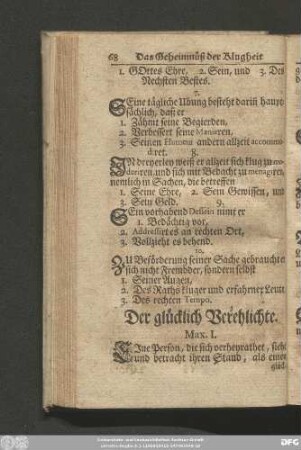 68 Das Geheimnüß der Klugheit
1. GOttes Ehre, 2. Sein, und 3. Des
Nechsten Bestes.
7.
SEine tägliche Ubung besteht darin haupt
sächlich, daß er
1. Zähmt seine Begierden,
2. Verbessert seine Manieren.
3. Seinen Humeur andern allzeit accommo-
diret. 8.
IN dreyerley weiß er allzeit sich klug zu mo-
deriren, und sich mit Bedacht zu menagiren,
nemlich in Sachen, die betreffen
1. Seine Ehre, 2. Sein Gewissen, und
3. Sein Geld. 9.
SEin vorhabend Dessein nimt er
1. Bedächtig vor,
2. Addressiret es an rechten Ort,
3. Vollzieht es behend.
10.
ZU Beförderung seiner Sache gebraucht er
sich nicht Frembder, sondern selbst
1. Seiner Augen,
2. Des Raths kluger und erfahrner Leute
3. Des rechten Tempo.
Der glücklich Verehlichte.
Max. I.
EIne Person, die sich verheyrathet, siehe
und betracht ihren Stand, als einen
glück-